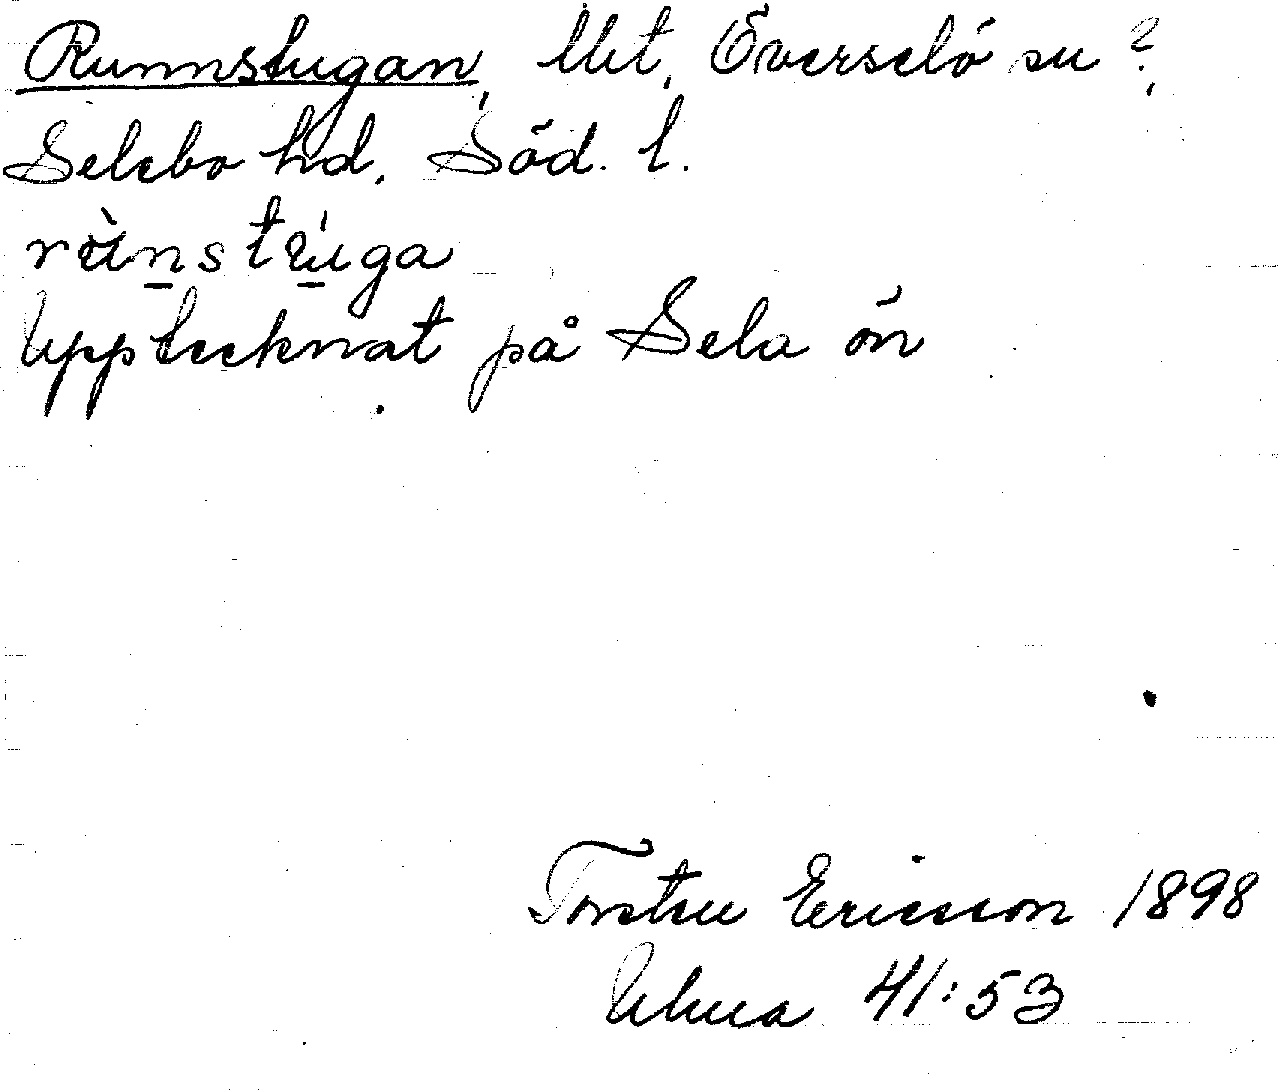 Runnstugan, Utet, Överselö sn?,
Selebo hd, Söd. l.
rùnstúga
Upptecknat på Selaön
Torsten Ericsson 1898
Uhua 41:53